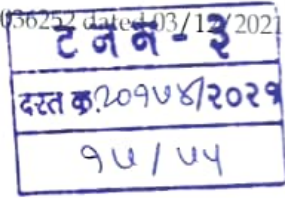 036252 dated 03/12/2021
ट न न - ३
दस्त क्र.२०१५४/२०२१
१५ / ५५